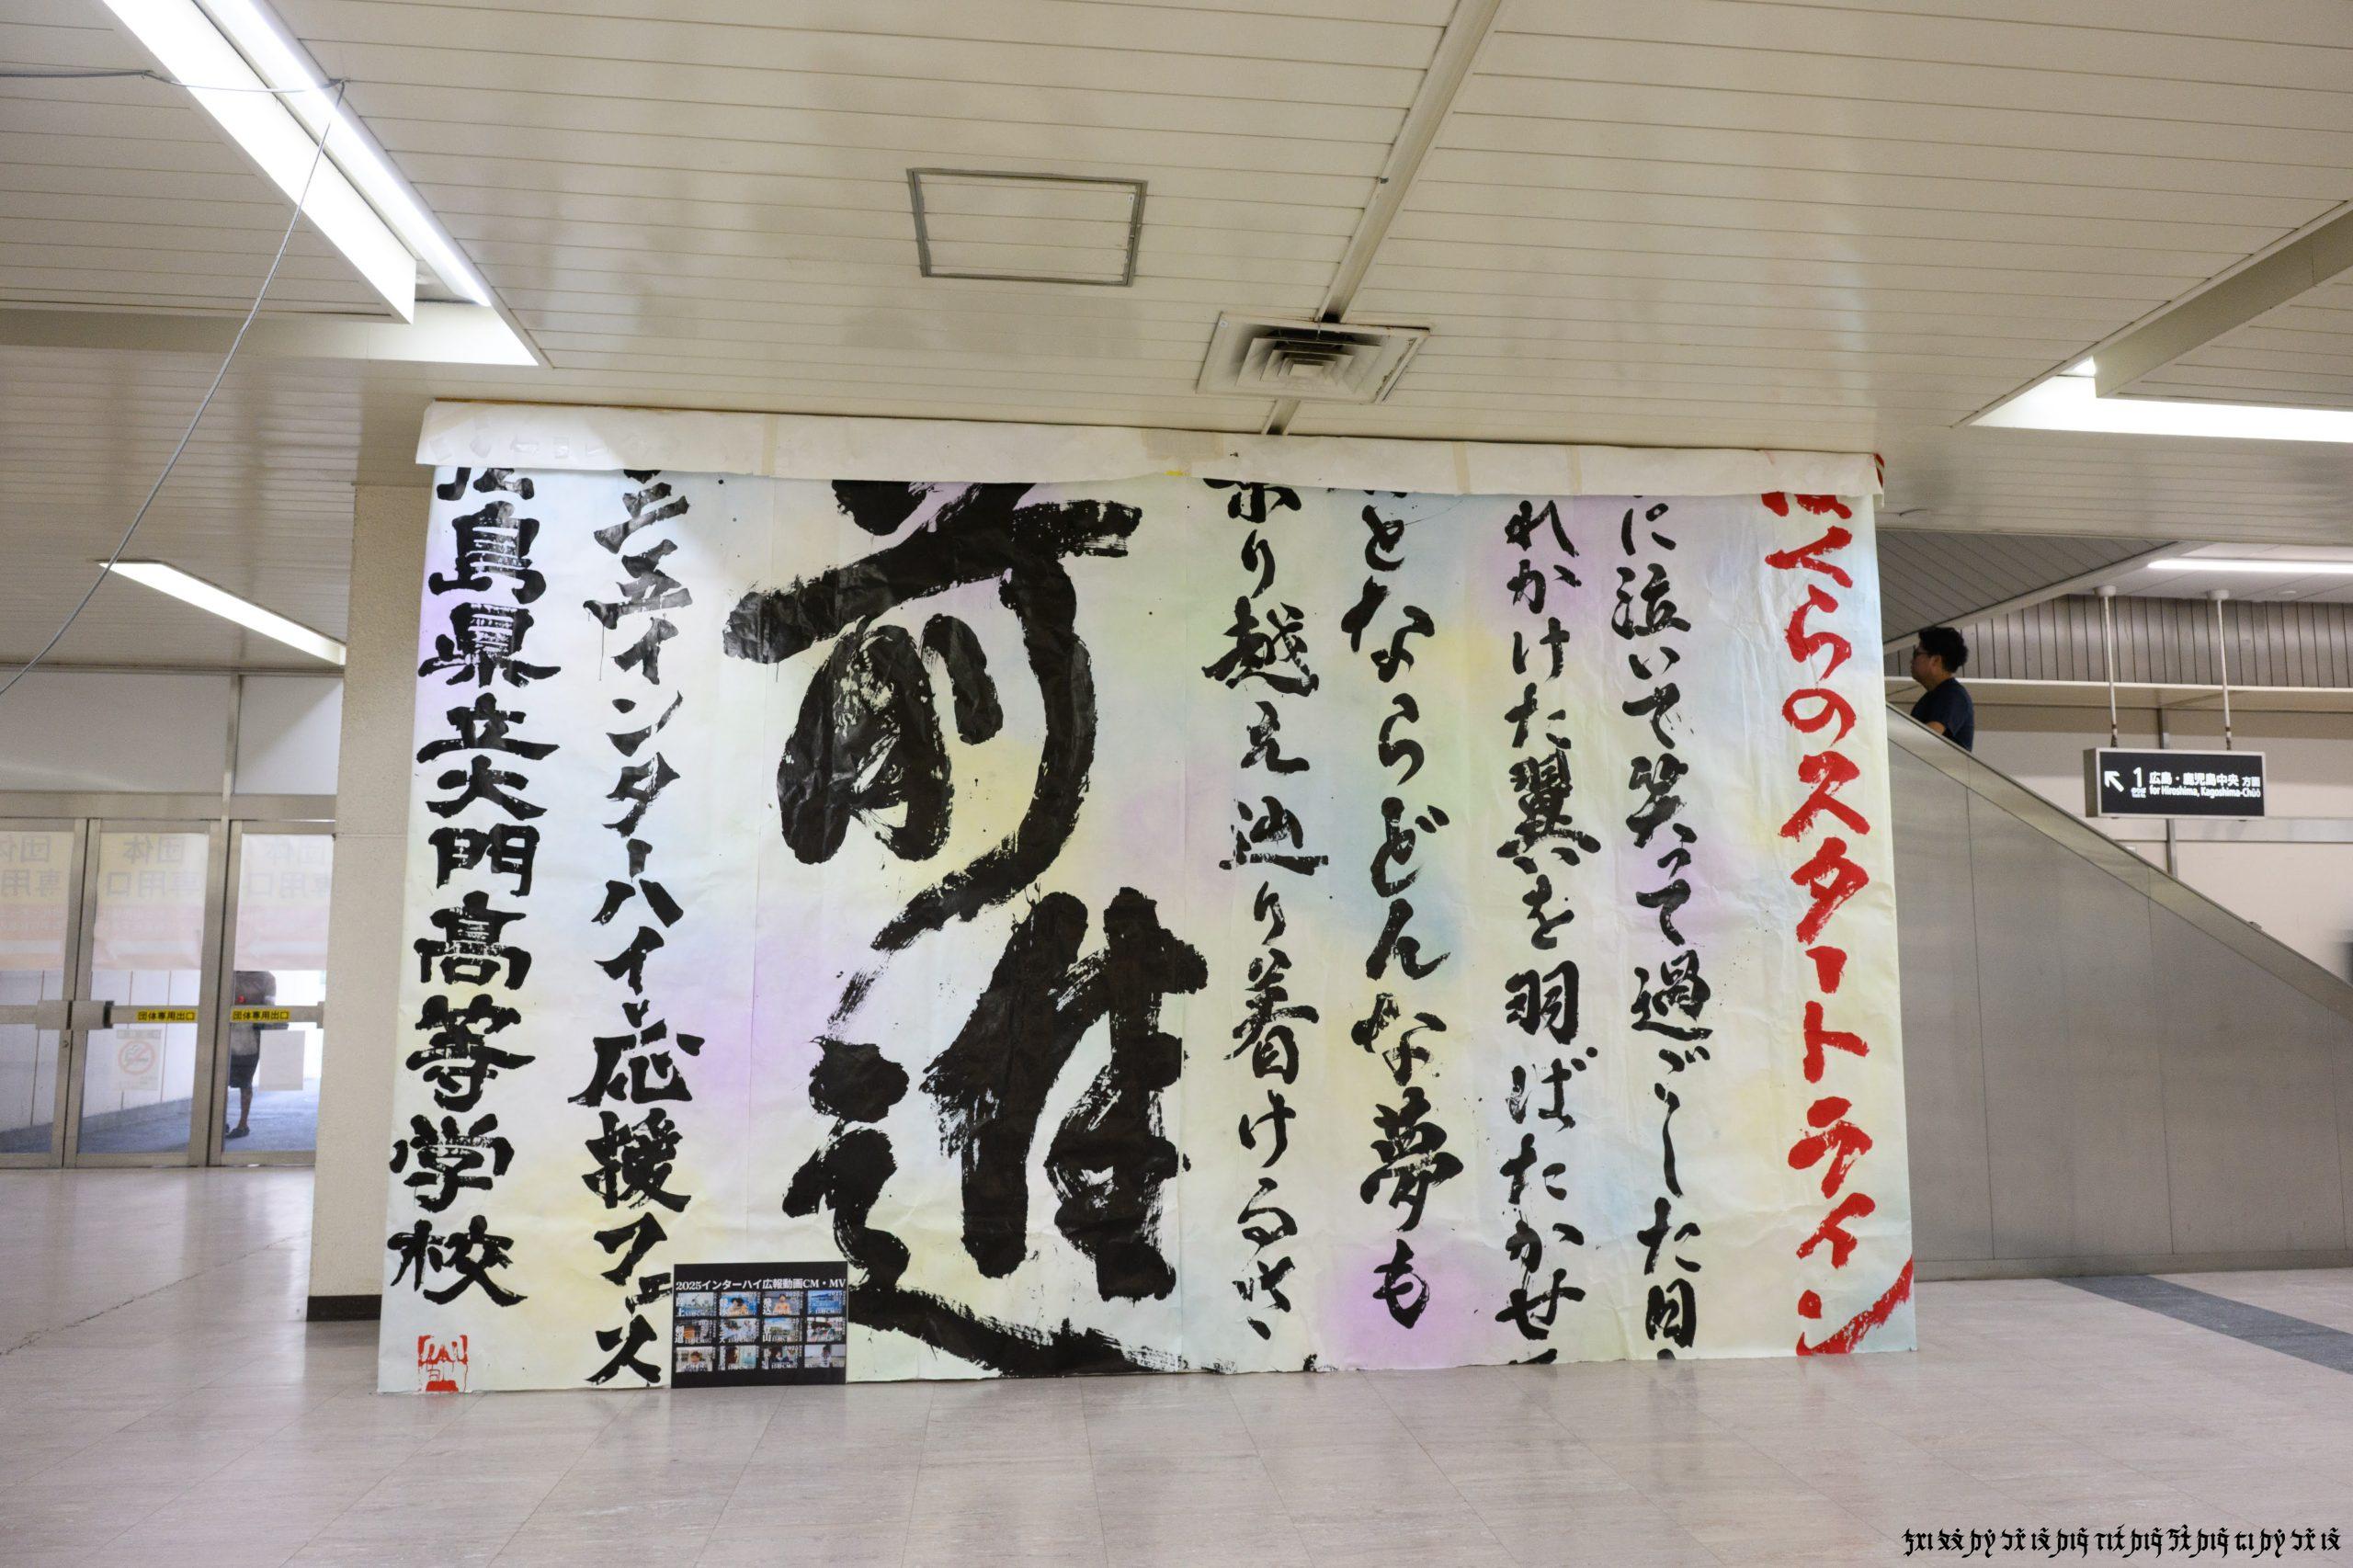 ぼくらのスタートライン
に泣いて笑って過ごした日
れかけた翼を羽ばたかせ
とならどんな夢も
乗り越え辿り着けるさ
前進
五インターハイ応援フェス
広島県立大門高等学校
2025インターハイ広報動画CM・MV
1 広島・鹿児島中央 方面
for Hiroshima, Kagoshima-Chūō
団体専用出口
団体専用出口